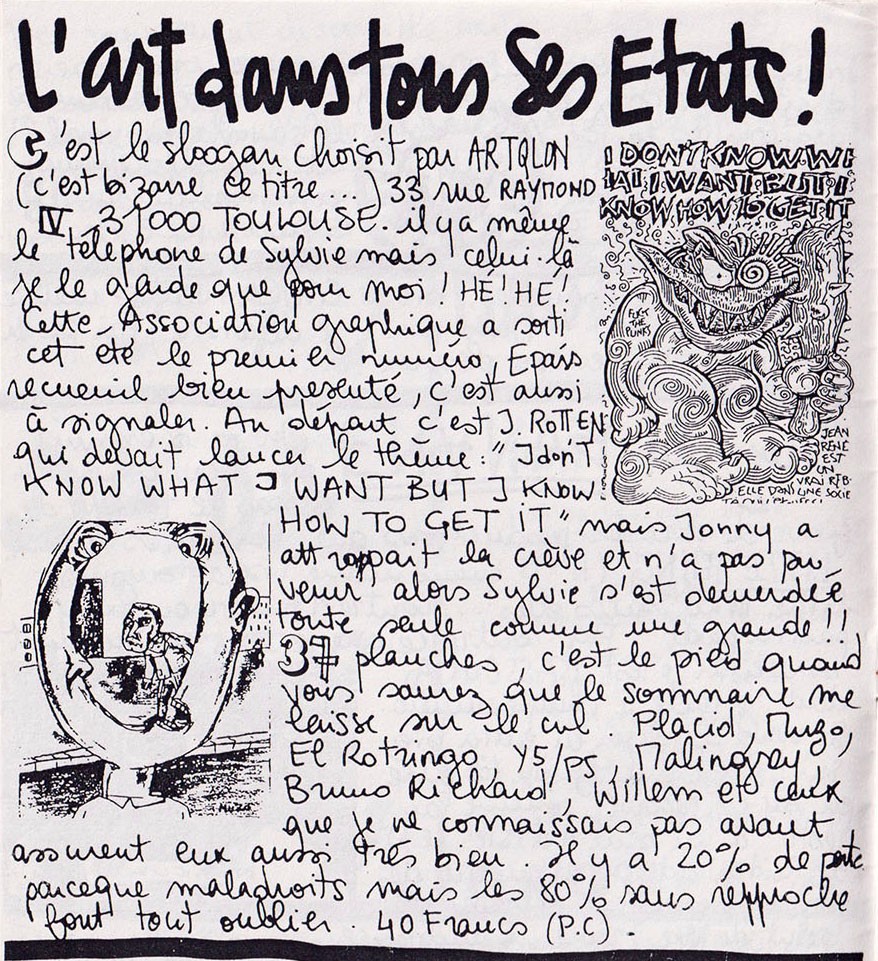 L'art dans tous ses Etats !
C'est le sloogan choisit par ARTQLON
(c'est bizarre ce titre...) 33 rue RAYMOND
IV, 31000 TOULOUSE. il y a même
le téléphone de Sylvie mais celui-là
je le garde que pour moi ! HÉ! HÉ!
Cette Association graphique a sorti
cet été le premier numéro, Epais
recueuil bien presenté, c'est aussi
à signaler. Au départ c'est J. ROTTEN
qui devait lancer le thème : " I don'T
KNOW WHAT I WANT BUT I KNOW
HOW TO GET IT " mais Jonny a
attrappait la crève et n'a pas pu
venir alors Sylvie s'est demerdée
toute seule comme une grande !!
37 planches, c'est le pied quand
vous saurez que le sommaire me
laisse sur le cul. Placid, Muzo,
El Rotringo, Y5/P5, Malingrey,
Bruno Richard, Willem et ceux
que je ne connaissais pas avant
assurent eux aussi très bien. Il y a 20% de perte
parceque maladroits mais les 80% sans repproche
font tout oublier. 40 Francs (P.C).
I DON'T KNOW WH
HAT I WANT BUT I
KNOW HOW TO GET IT
FUCK
THE
PUNKS
JEAN
RENÉ
EST
UN
VRAI REB-
ELLE DANS UNE SOCIE
MUZO